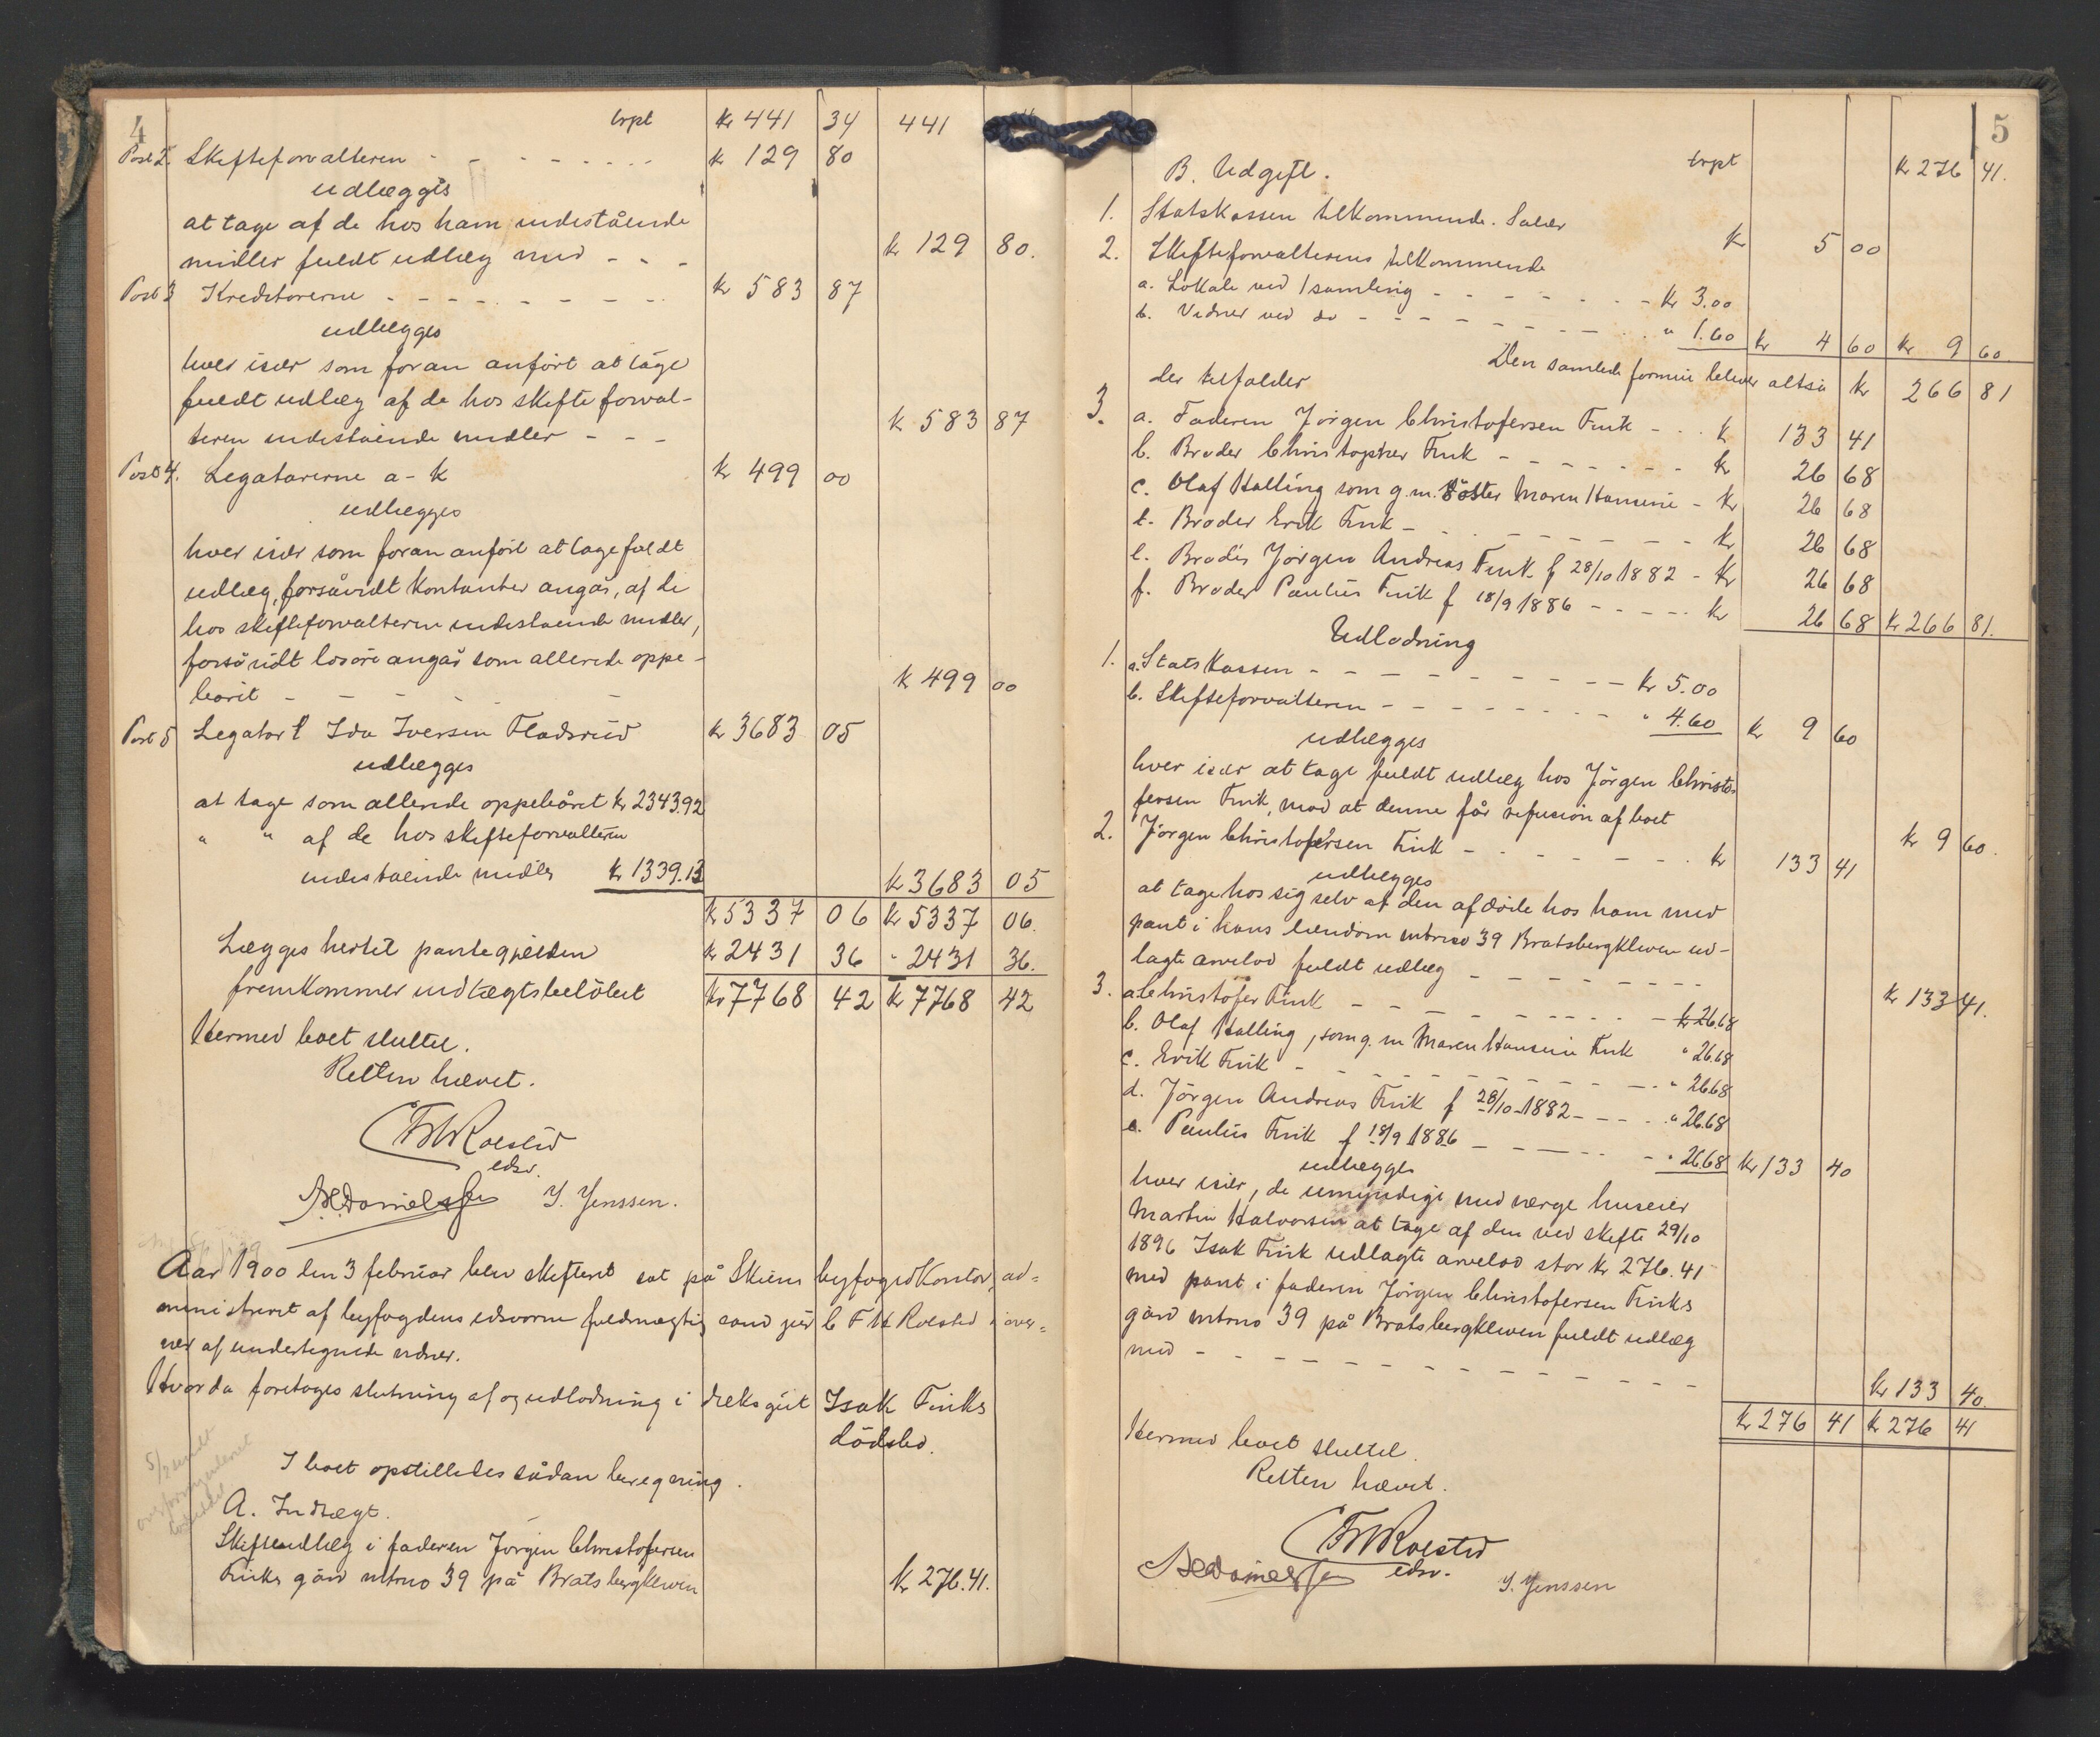 4
trpt kr 441 34 441
Post 2. Skifteforvalteren - - - - - - - kr 129 80
udlægges
at tage af de hos ham indestående
midler fuldt udlæg med - - - kr 129 80.
Post 3 Kreditorerne - - - - - - - - kr 583 87
udlægges
hver især som foran anført at tage
fuldt udlæg af de hos skifteforval-
teren indestående midler - - - kr 583 87
Post 4. Legatarerne a - k kr 499 00
udlægges
hver især som foran anført at tage fuldt
udlæg, forsåvidt kontanter angår, af de
hos skifteforvalteren indestående midler,
forsåvidt løsøre angår som allerede oppe-
båret - - - - - kr 499 00
Post 5 Legatar l Ida Iversen Fladsrud kr 3683 05
udlægges
at tage som allerede oppebåret kr 2343.92
" " af de hos skifteforvalteren
indestående midler kr 1339.13 kr 3683 05
kr 5337 06 kr 5337 06.
Lægges hertil pantegjelden kr 2431 36 - 2431 36.
fremkommer indtægtsbeløbet kr 7768 42 kr 7768 42
Hermed boet sluttet.
Retten hævet.
CFHRoested
edsv.
Danielsen S. Jenssen.
Aar 1900 den 3 februar blev skifteret sat på Skiens byfogedkontor, ad-
ministreret af byfogdens edsvorne fuldmægtig cand jur C F H Roested i over-
vær af undertegnede vidner.
Hvorda foretoges slutning af og udlodning i dreksgut Isak Finks
dødsbo.
5/2 sendt
overformynderiet
I boet opstilledes sådan beregning.
A. Indtægt.
Skifteudlæg i faderen Jørgen Christofersen
Finks gård mtrno 39 på Bratsbergkleven kr 276.41.
5
trpt kr 276 41.
B. Udgift.
1. Statskassen tilkommende. Salær kr 5 00
2. Skifteforvalterens tilkommende
a. Lokale ved 1 samling - - - - - - - kr 3.00
b. Vidner ved do - - - - - - - - " 1.60 kr 4 60 kr 9 60
Den samlede formue bliver altså kr 266 81
der tilfalder
3. a. Faderen Jørgen Christofersen Fink - - - kr 133 41
b. Broder Christopher Fink - - - - - - - kr 26 68
c. Olaf Halling som g. m. søster Maren Hansine - kr 26 68
d. Broder Erik Fink - - - - - - - - kr 26 68
e. Broder Jørgen Andreas Fink f 28/10 1882 - kr 26 68
f. Broder Paulus Fink f 18/9 1886 - - - - - kr 26 68 kr 266 81.
Udlodning
1. a. Statskassen - - - - - - - - - kr 5.00
b. Skifteforvalteren - - - - - - - - " 4.60 kr 9 60
udlægges
hver især at tage fuldt udlæg hos Jørgen Christo-
fersen Fink, mod at denne får refusion af boet kr 9 60.
2. Jørgen Christofersen Fink - - - - - - - kr 133 41
udlægges
at tage hos sig selv af den afdøde hos ham med
pant i hans eiendom mtrno 39 Bratsbergkleven ud-
lagte arvelod fuldt udlæg - - - - - - - kr 133 41.
3. a. Christofer Fink - - - - - - - - - kr 26.68
b. Olaf Halling, som g. m Maren Hansine Fink " 26.68
c. Erik Fink - - - - - - - - - - - " 26.68
d. Jørgen Andreas Fink f 28/10 1882 - - - - " 26.68
e. Paulus Fink f 18/9 1886 - - - - - - - " 26.68 kr 133 40
udlægges
hver især, de umyndige med værge huseier
Martin Halvorsen at tage af den ved skifte 29/10
1896 Isak Fink udlagte arvelod stor kr 276.41
med pant i faderen Jørgen Christofersen Finks
gård mtrno 39 på Bratsbergkleven fuldt udlæg
med - - - - - - - - - - - - - kr 133 40.
kr 276 41 kr 276 41
Hermed boet sluttet.
Retten hævet.
CFHRoested
edsv.
Danielsen S. Jenssen